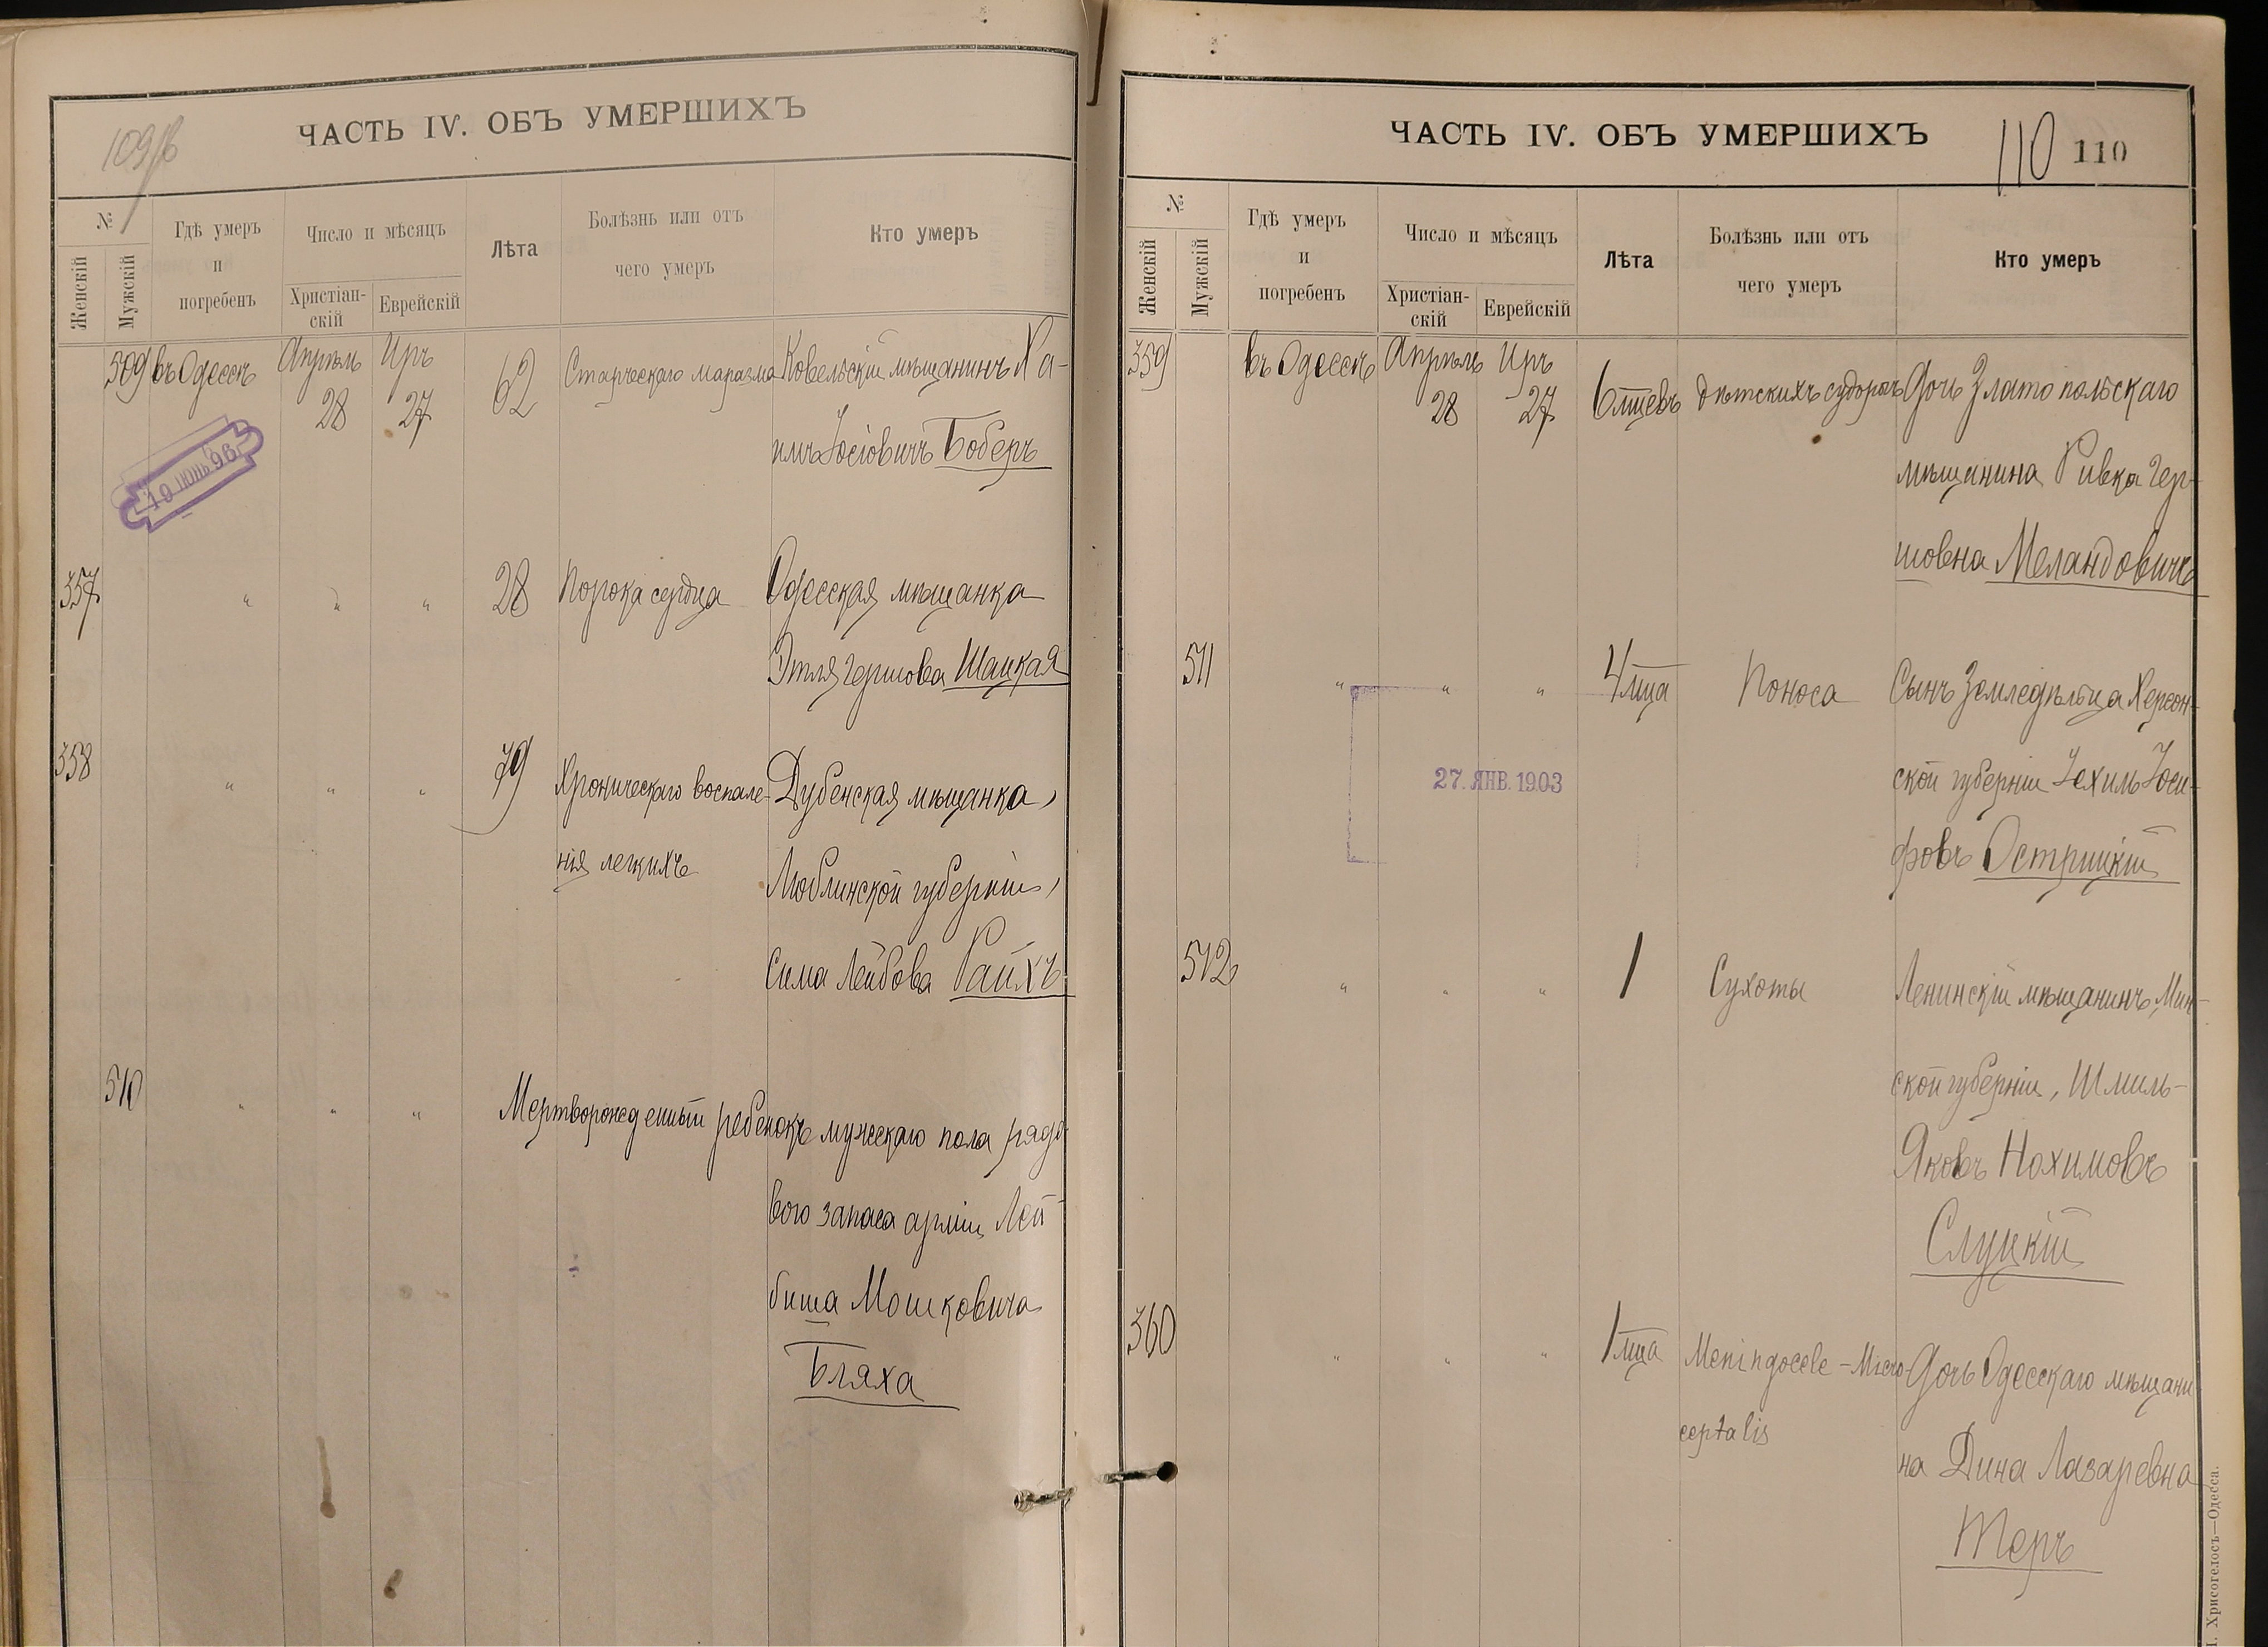 109/в
ЧАСТЬ IV. ОБЪ УМЕРШИХЪ
№
Женскій
Мужскій
Гдѣ умеръ
и
погребенъ
Число и мѣсяцъ
Христіан-
скій
Еврейскій
Лѣта
Болѣзнь или отъ
чего умеръ
Кто умеръ
509 въ Одессѣ Апрѣль Иръ 62 Старческаго маразма Ковельскій мѣщанинъ Ха-
28 27
имъ Іосіовичъ Боберъ
19 ІЮНЬ 96
357 " " " 28 Порока сердца Одесская мѣщанка
Этля Гершова Шацкая
358 " " " 79 Хроническаго воспале- Дубенская мѣщанка,
нія легкихъ Люблинской губерніи,
Сима Лейбова Райхъ
510 " " " Мертворожденный ребенокъ мужскаго пола рядо-
вого запаса арміи Лей-
биша Мошковича
Бляха
ЧАСТЬ IV. ОБЪ УМЕРШИХЪ
110 110
№
Женскій
Мужскій
Гдѣ умеръ
и
погребенъ
Число и мѣсяцъ
Христіан-
скій
Еврейскій
Лѣта
Болѣзнь или отъ
чего умеръ
Кто умеръ
359 въ Одессѣ Апрѣль Иръ 6 мцевъ Дѣтскихъ судорогъ Дочь Златопольскаго
28 27
мѣщанина Ривка Гер-
шовна Меландовичъ
511 " " " 4 мца Поноса Сынъ Земледѣльца Херсон-
ской губерніи Іехиль Іоси-
фовъ Острицкій
27. ЯНВ. 1903
512 " " " 1 Сухоты Ленинскій мѣщанинъ, Мин-
ской губерніи, Шмиль-
Яковъ Нохимовъ
Слуцкій
360 " " " 1 мца Meningocele - Micro- Дочь Одесскаго мѣщани-
ceptalis
на Дина Лазаревна
Теръ
Хрисогелосъ—Одесса.